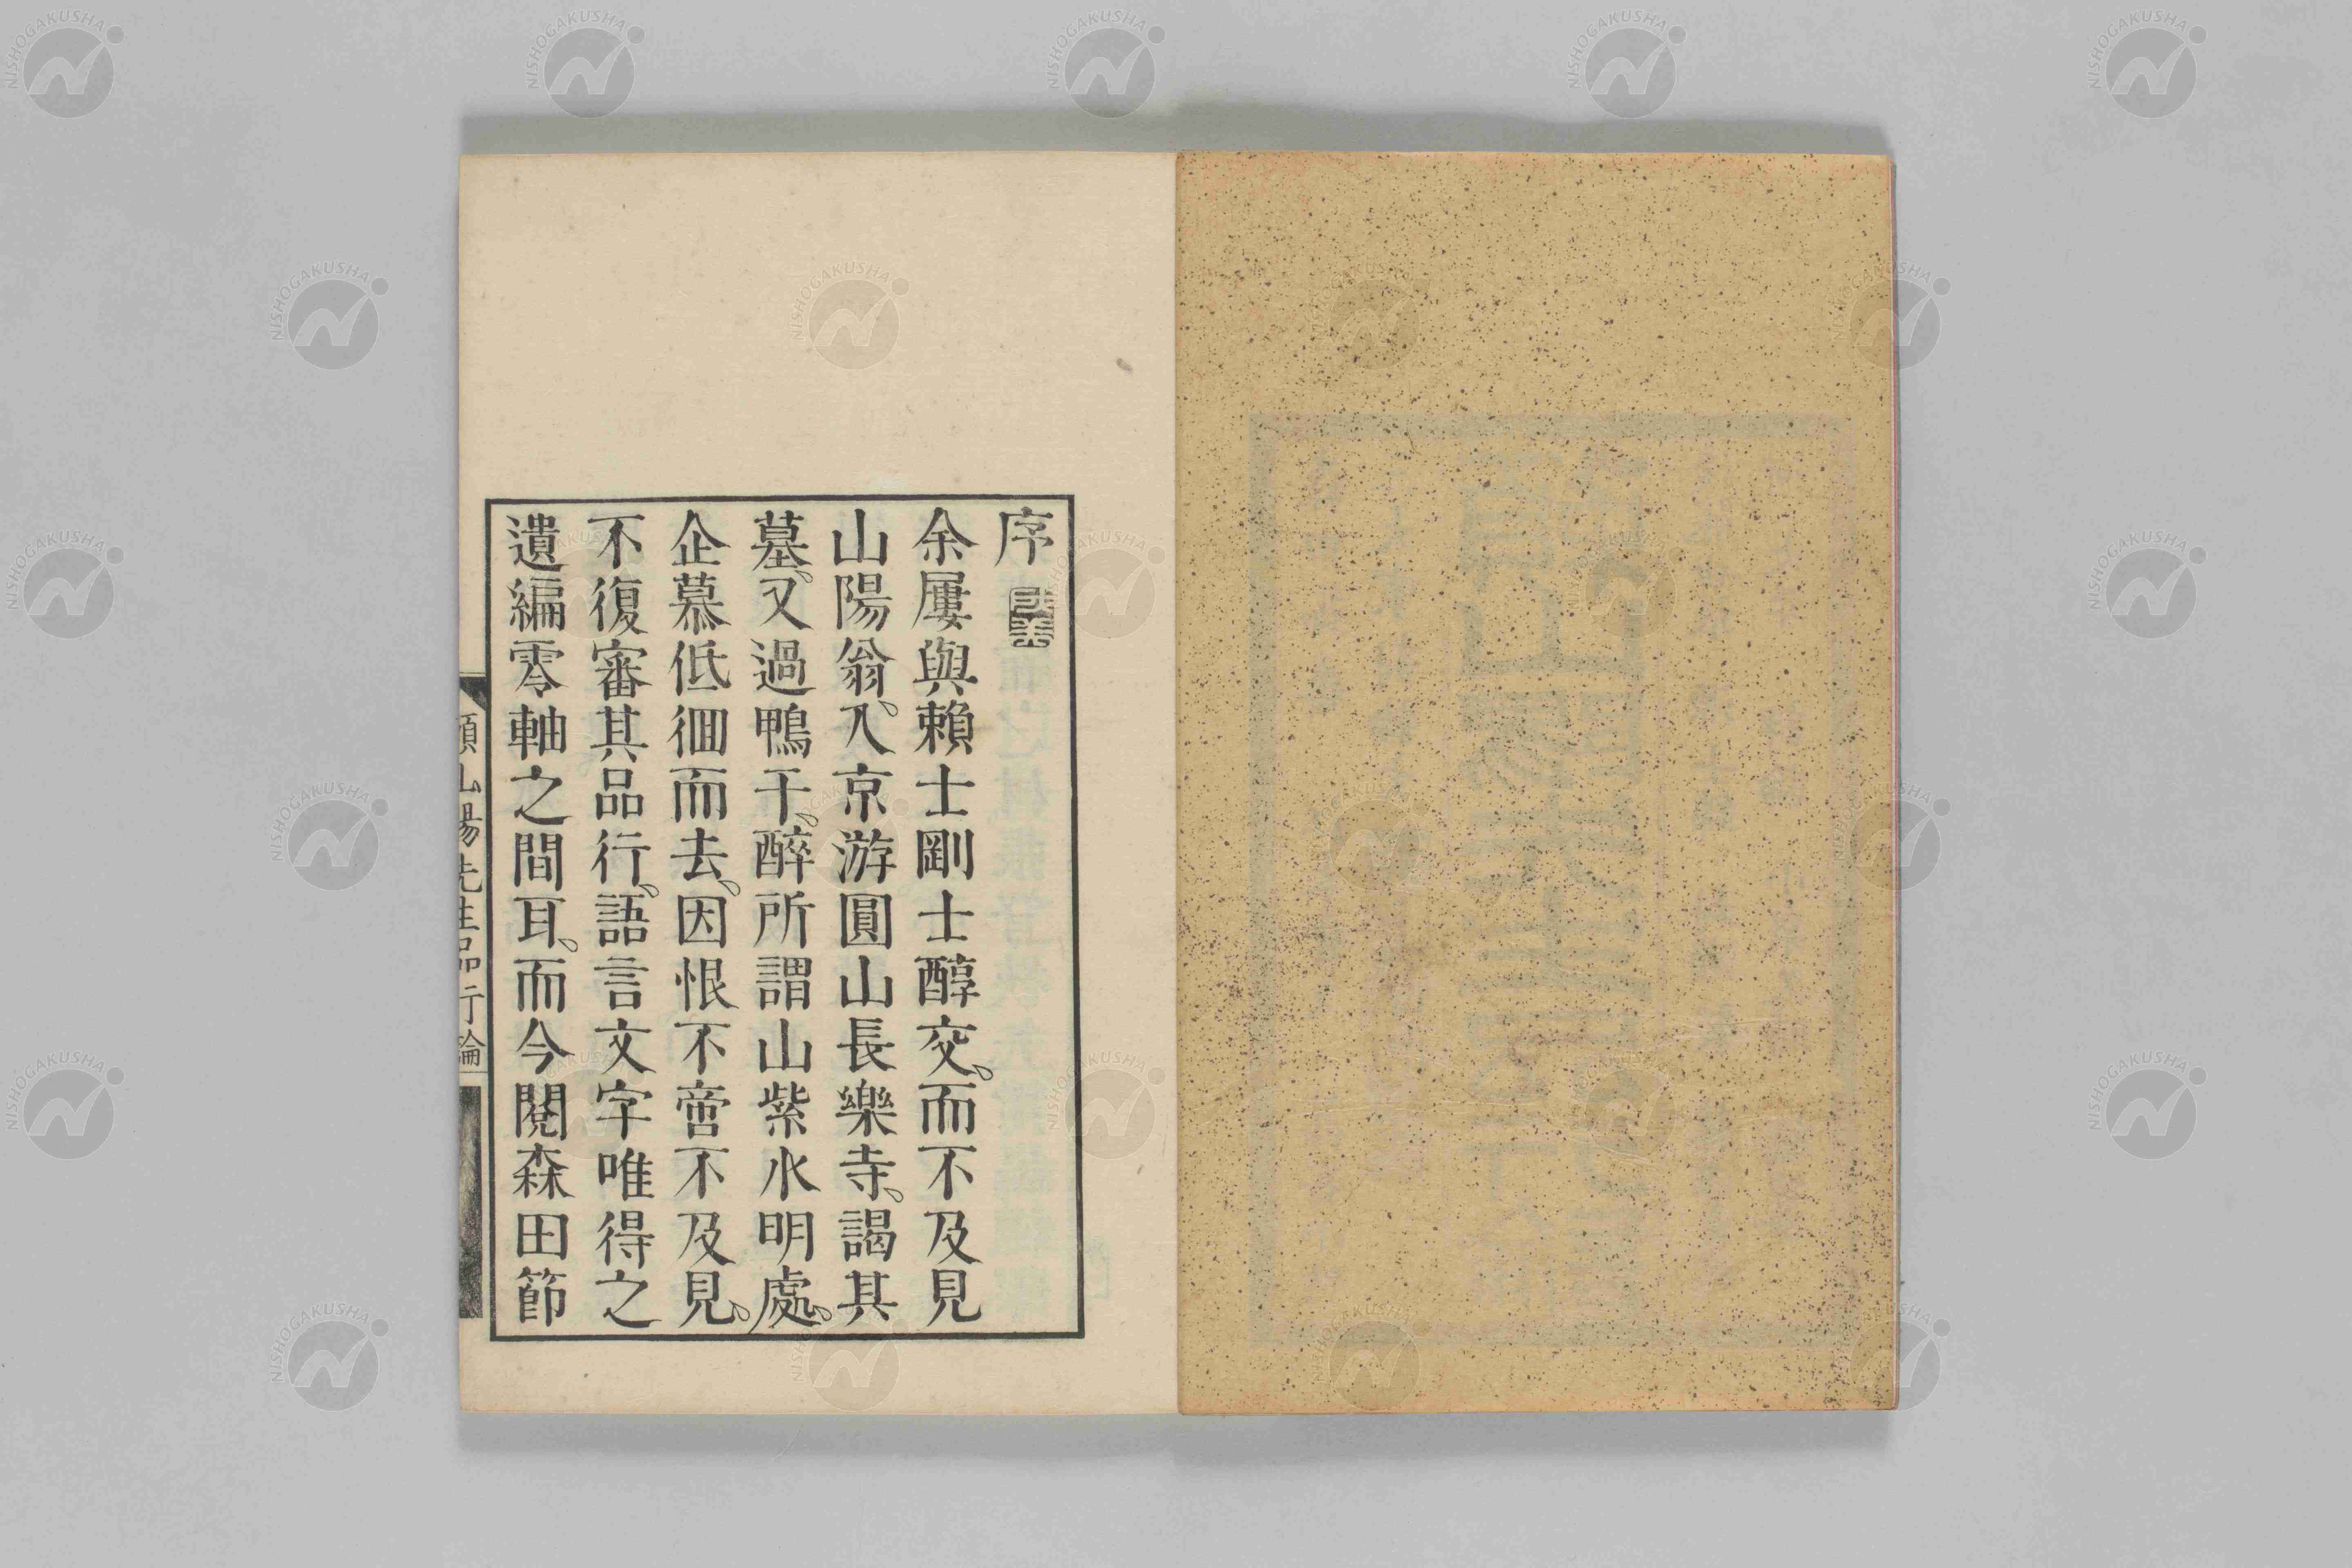 序
余屢與賴士剛士醇交。而不及見
山陽翁、入京游圓山長樂寺。謁其
墓。又過鴨干。醉所謂山紫水明處。
企慕低徊而去。因恨不啻不及見。
不復審其品行。語言文字唯得之
遺編零軸之間耳。而今閱森田節
賴山陽先生品行論
NISHOGAKUSHA